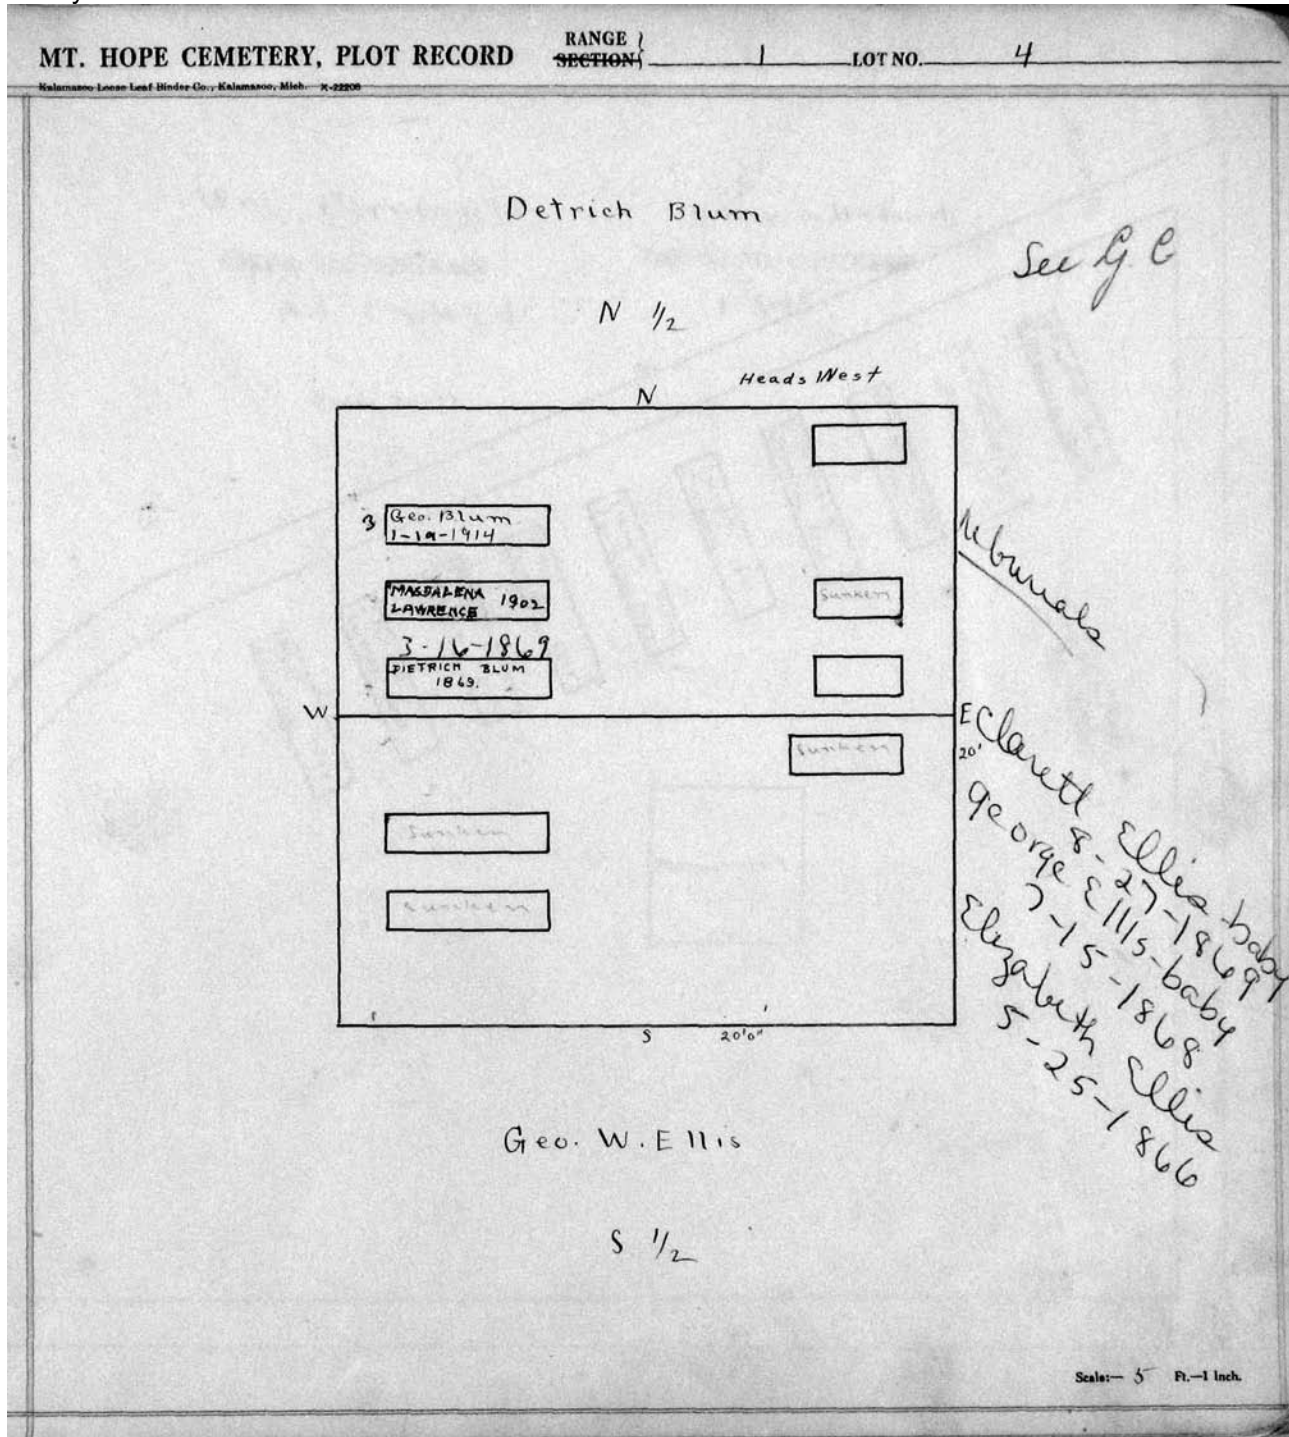 MT. HOPE CEMETERY, PLOT RECORD
RANGE
SECTION 1 LOT NO. 4
Kalamazoo Loose Leaf Binder Co., Kalamazoo, Mich. X-22208
Detrich Blum
See G. C
N 1/2
Heads West
N
3 Geo. Blum
1-19-1914
MAGDALENA
LAWRENCE 1902
Sunken
3-16-1869
DIETRICH BLUM
1869.
Reburials
W
E
20'
Sunken
Sunken
Sunken
S 20'0"
Clareth Ellis-baby
8-27-1869
George Ellis-baby
7-15-1868
Elizabeth Ellis
5-25-1866
Geo. W. Ellis
S 1/2
Scale:— 5 Ft.—1 Inch.